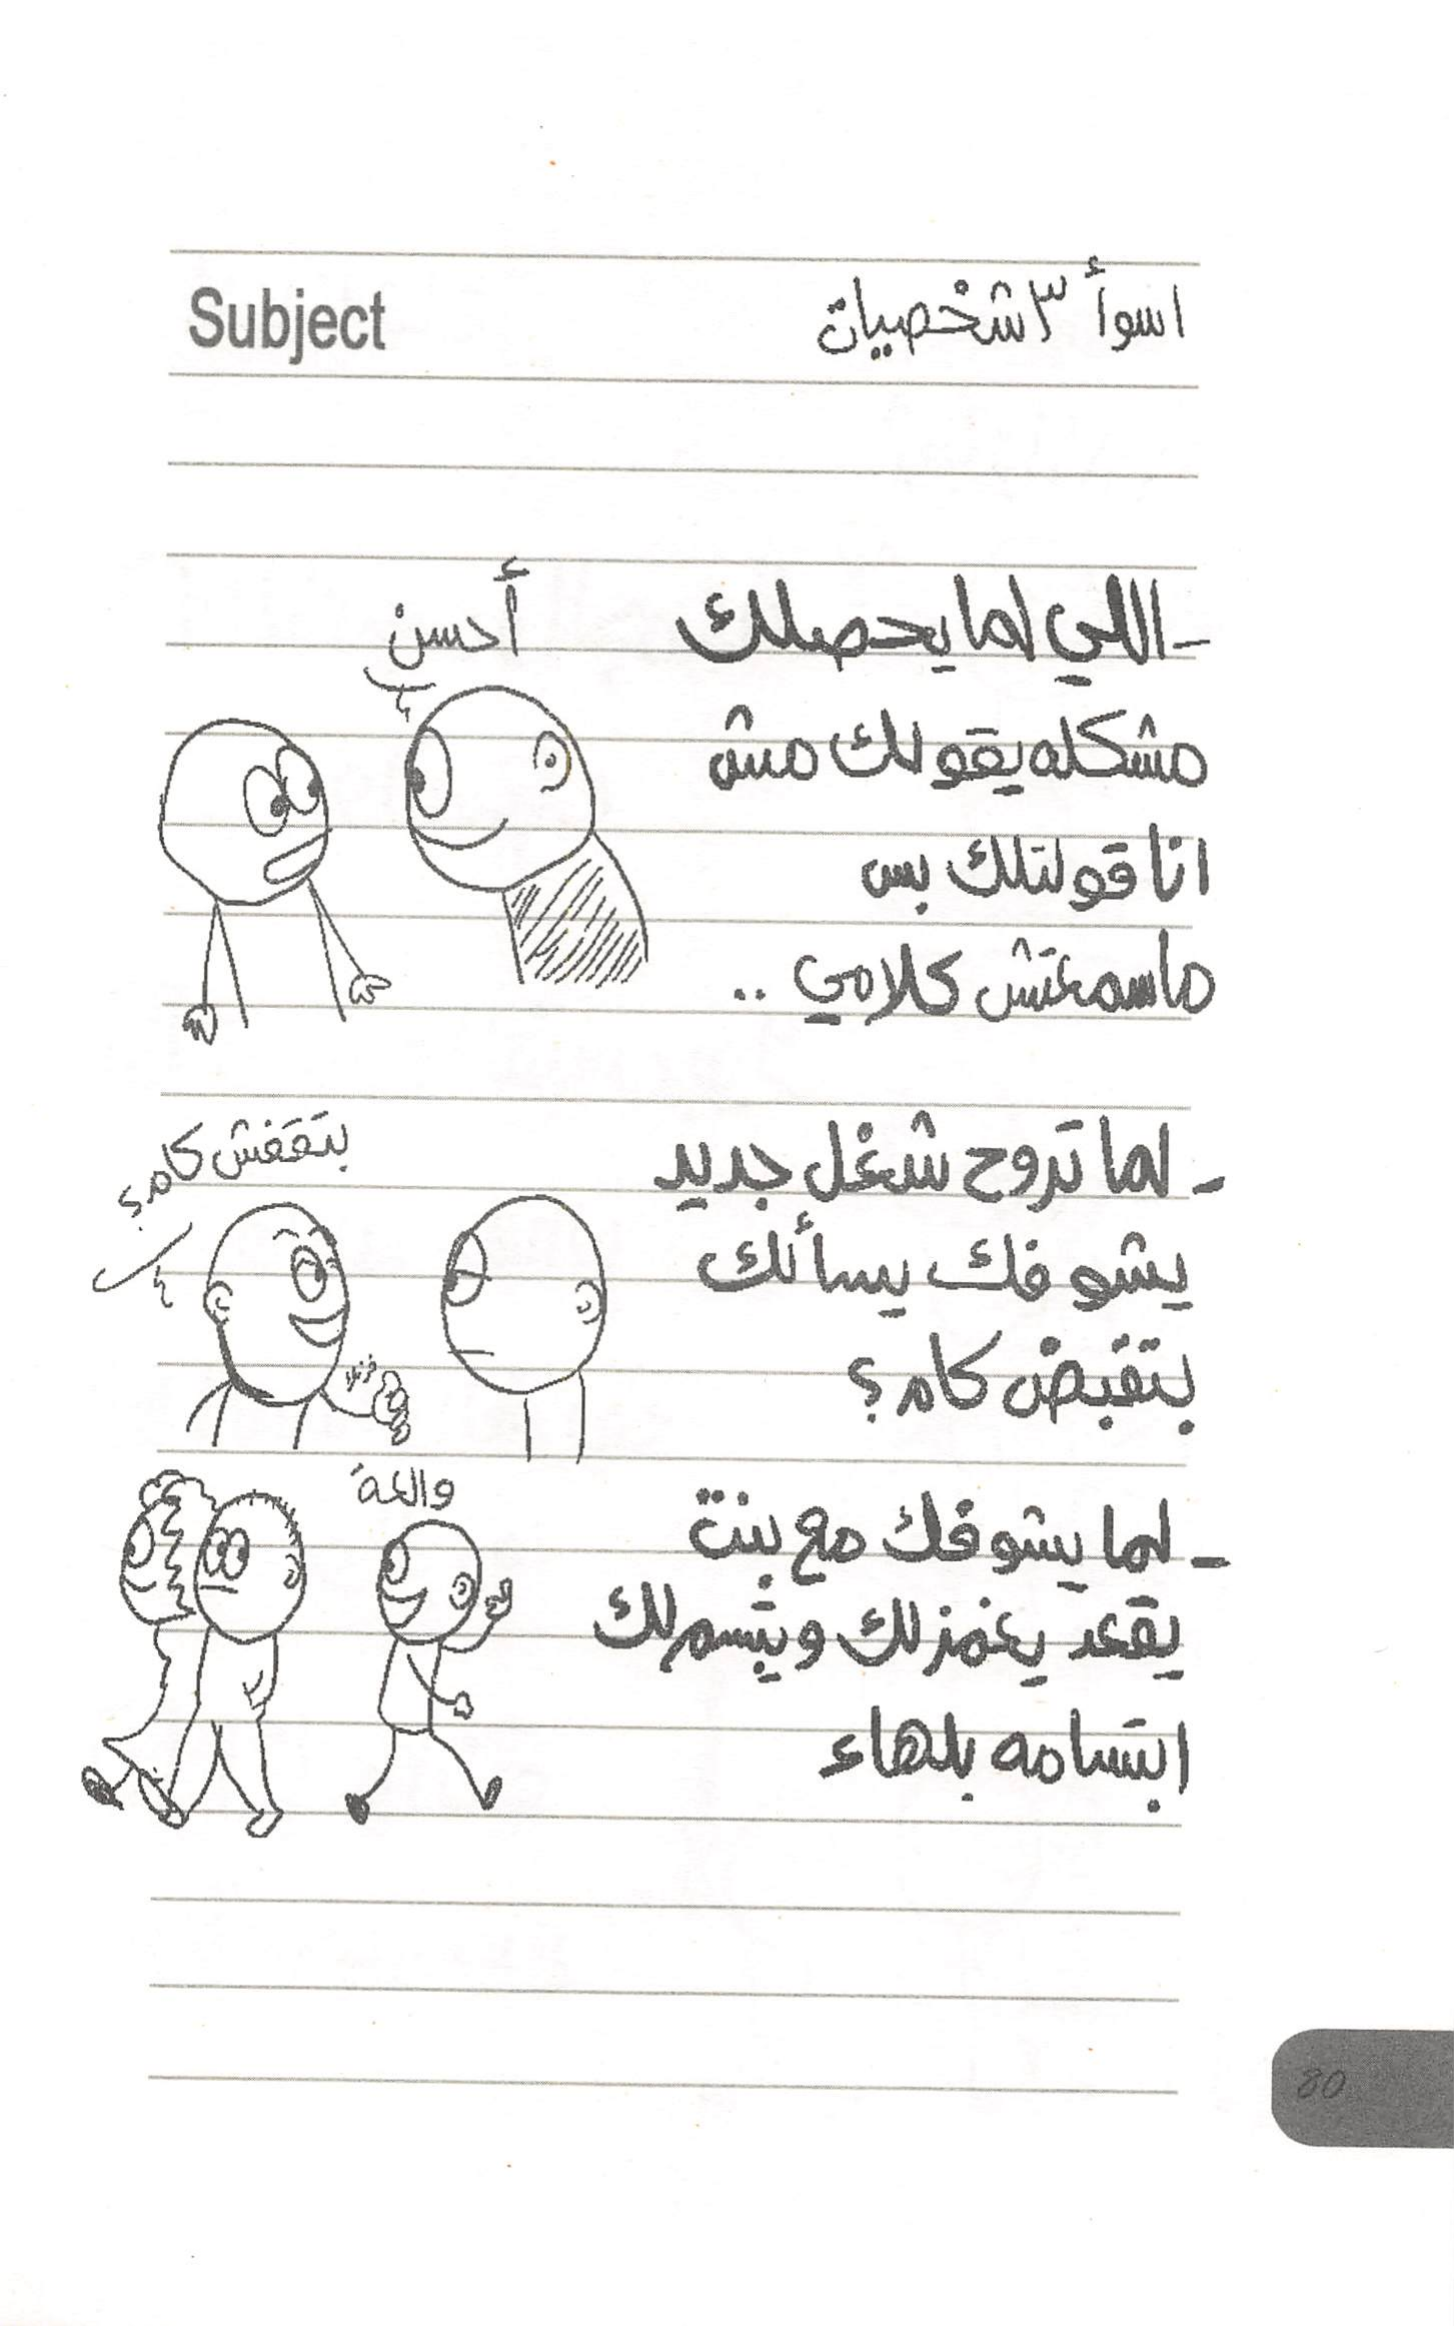 Subject
اسوأ ٣ شخصيات
أحسن
- اللي لما يحصلك
مشكله يقولك مش
انا قولتلك بس
ماسمعتش كلامي ..
بتقفش كام؟
- لما تروح شغل جديد
يشوفك يسألك
بتقبض كام؟
والعة
- لما يشوفك مع بنت
يقعد يغمزلك ويبتسملك
ابتسامه بلهاء
80